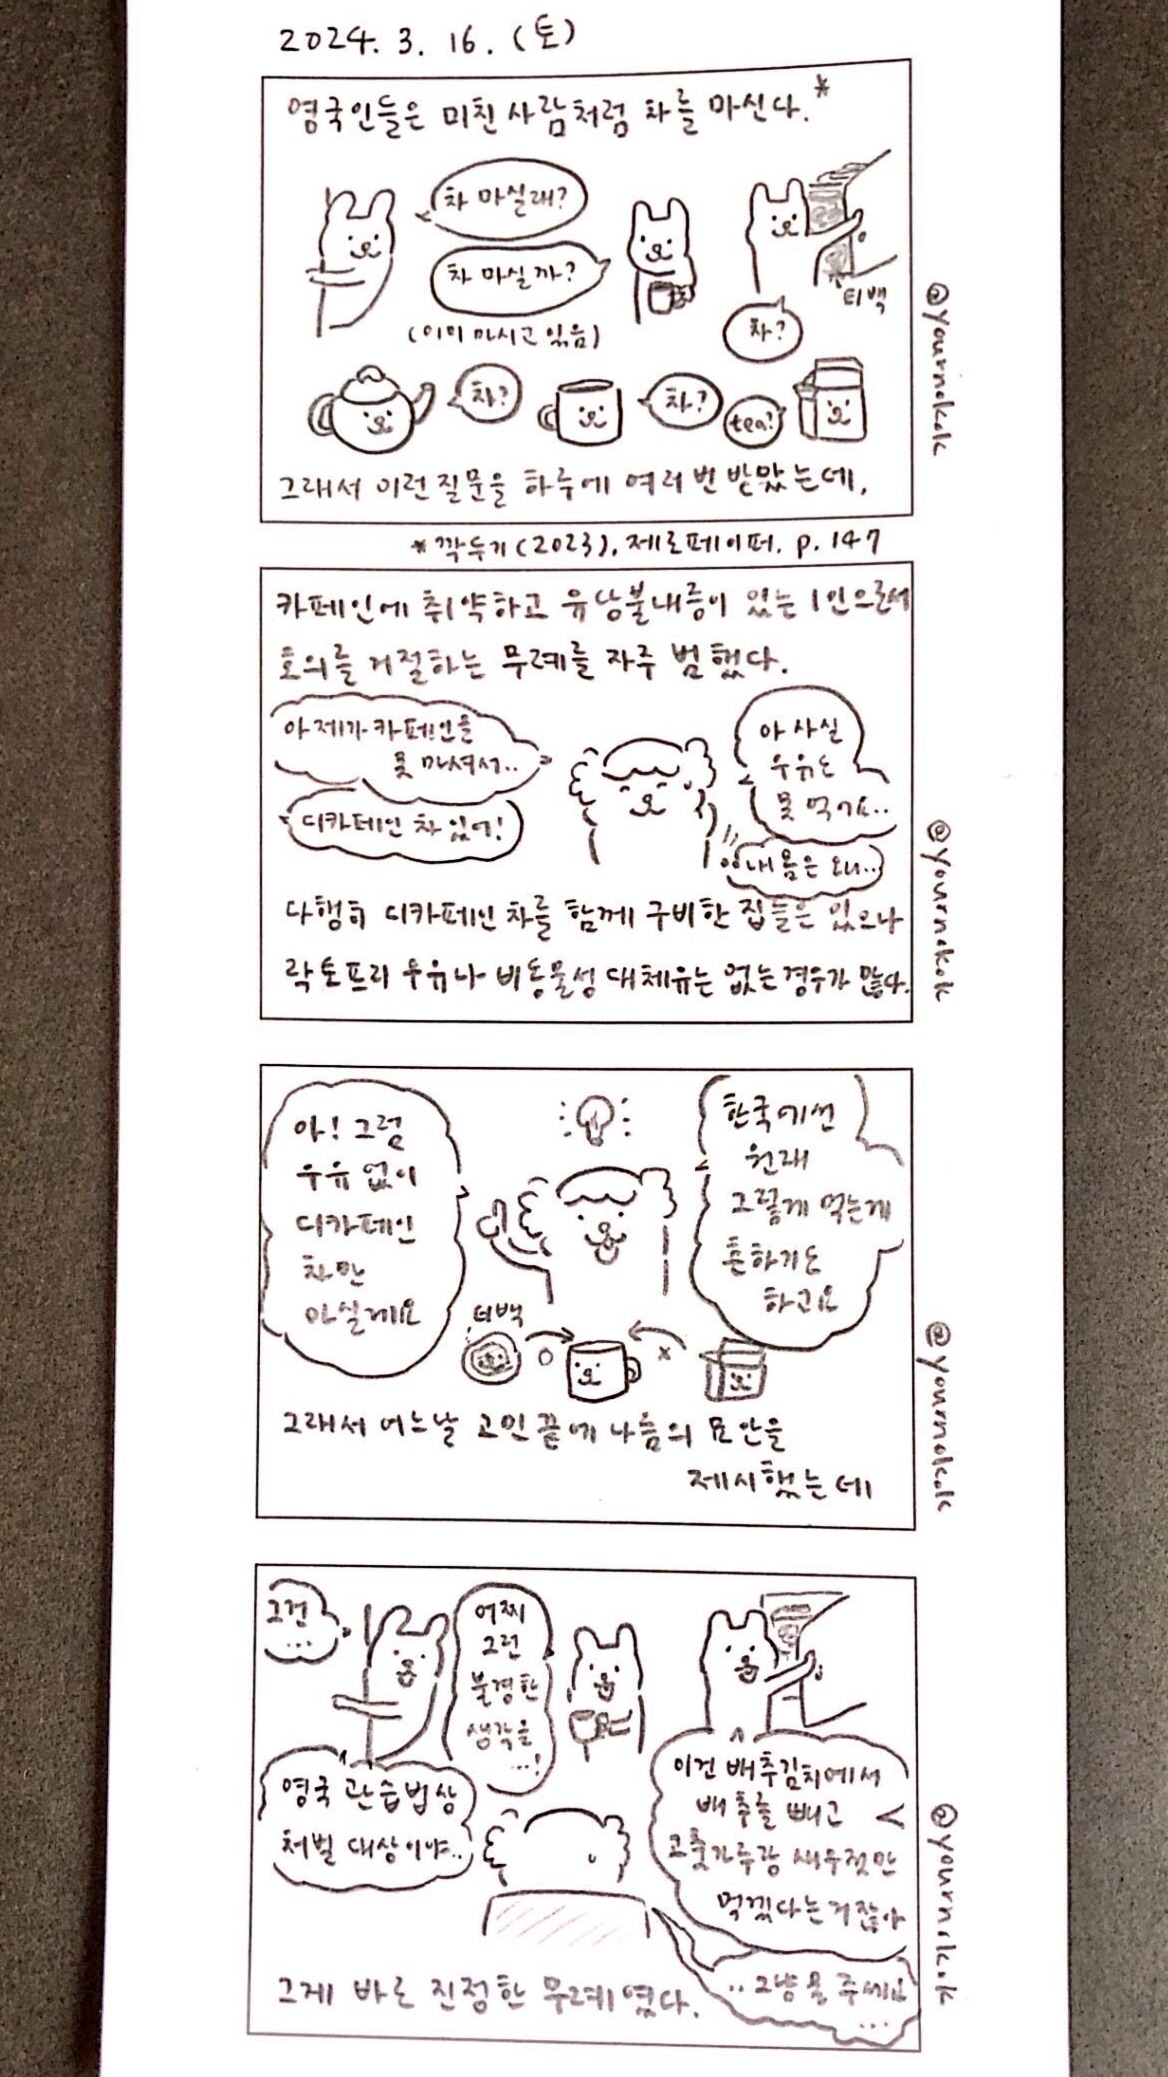 2024. 3. 16. (토)
영국인들은 미친 사람처럼 차를 마신다.*
차 마실래?
차 마실까?
(이미 마시고 있음)
티백
차?
차?
차?
tea?
그래서 이런 질문을 하루에 여러 번 받았는데,
@yournokok
*깍두기(2023), 제로페이퍼. p. 147
카페인에 취약하고 유당불내증이 있는 1인으로서
호의를 거절하는 무례를 자주 범했다.
아 제가 카페인을
못 마셔서..
디카페인 차 있어!
아 사실
우유도
못 먹거요..
내 몸은 왜..
다행히 디카페인 차를 함께 구비한 집들은 있으나
락토프리 우유나 비동물성 대체유는 없는 경우가 많다.
@yournokok
아! 그럼
우유 없이
디카페인
차만
마실게요
한국에선
원래
그렇게 먹는게
흔하기도
하고요
티백
o
x
그래서 어느날 고민 끝에 나름의 묘안을
제시했는데
@yournokok
그건
...
어찌
그런
불경한
생각을
...!
영국 관습법상
처벌 대상이야..
이건 배추김치에서
배추를 빼고
고춧가루랑 새우젓만
먹겠다는 거잖아
..그냥 물 주세요
...
그게 바로 진정한 무례였다.
@yournokok